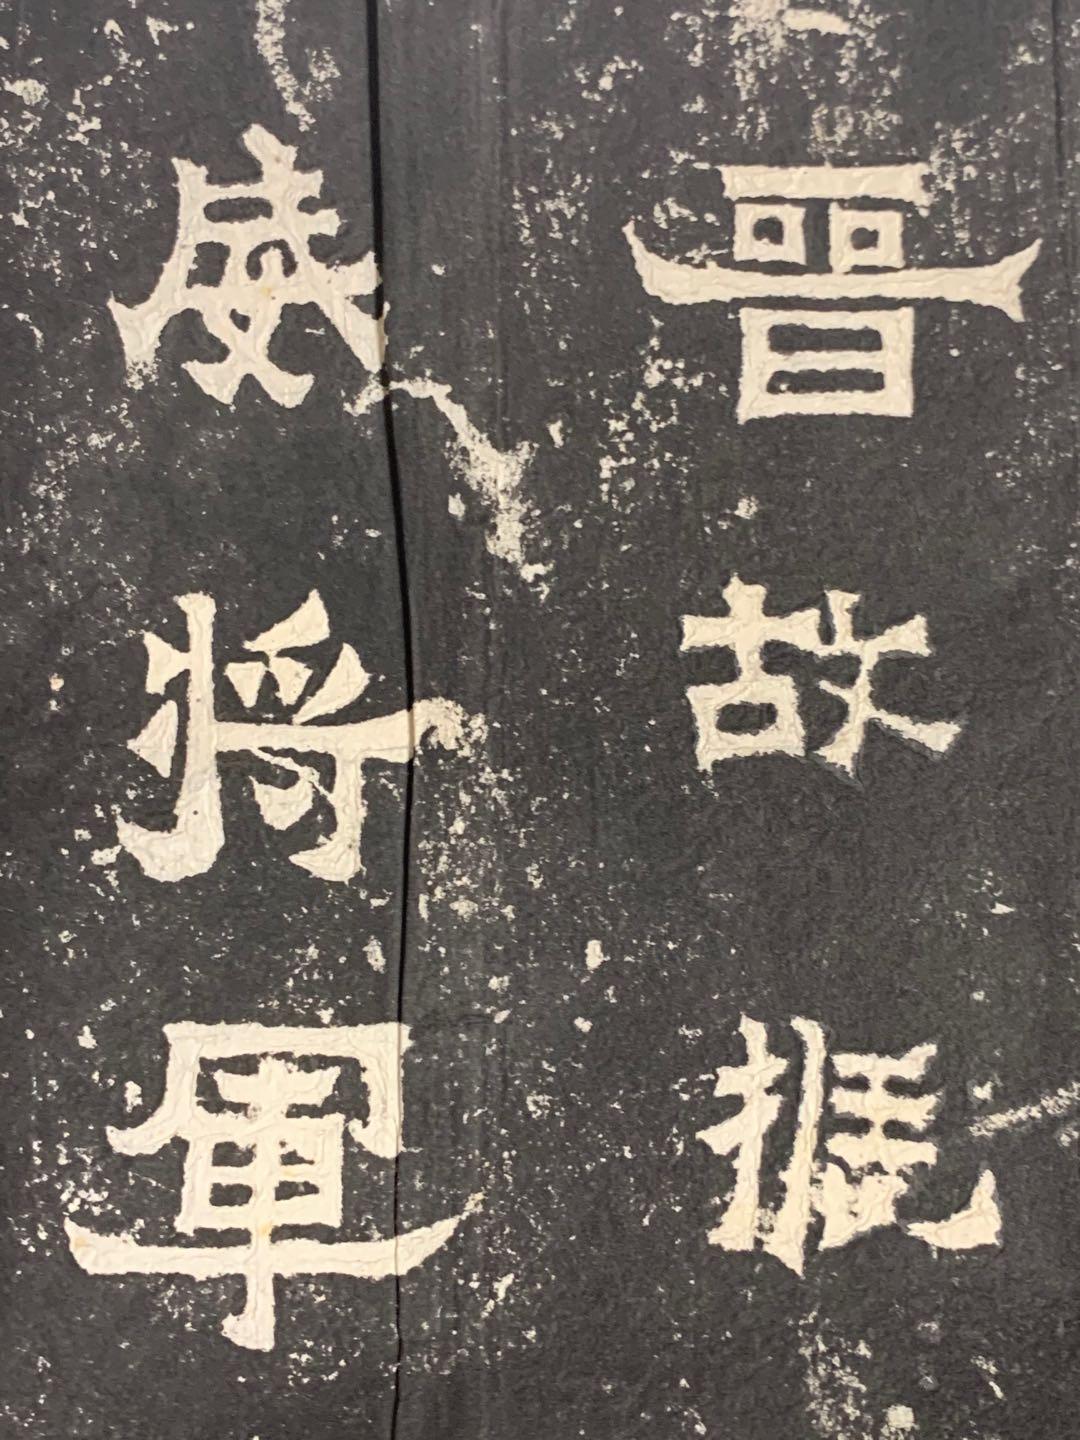 晋故振
威將軍